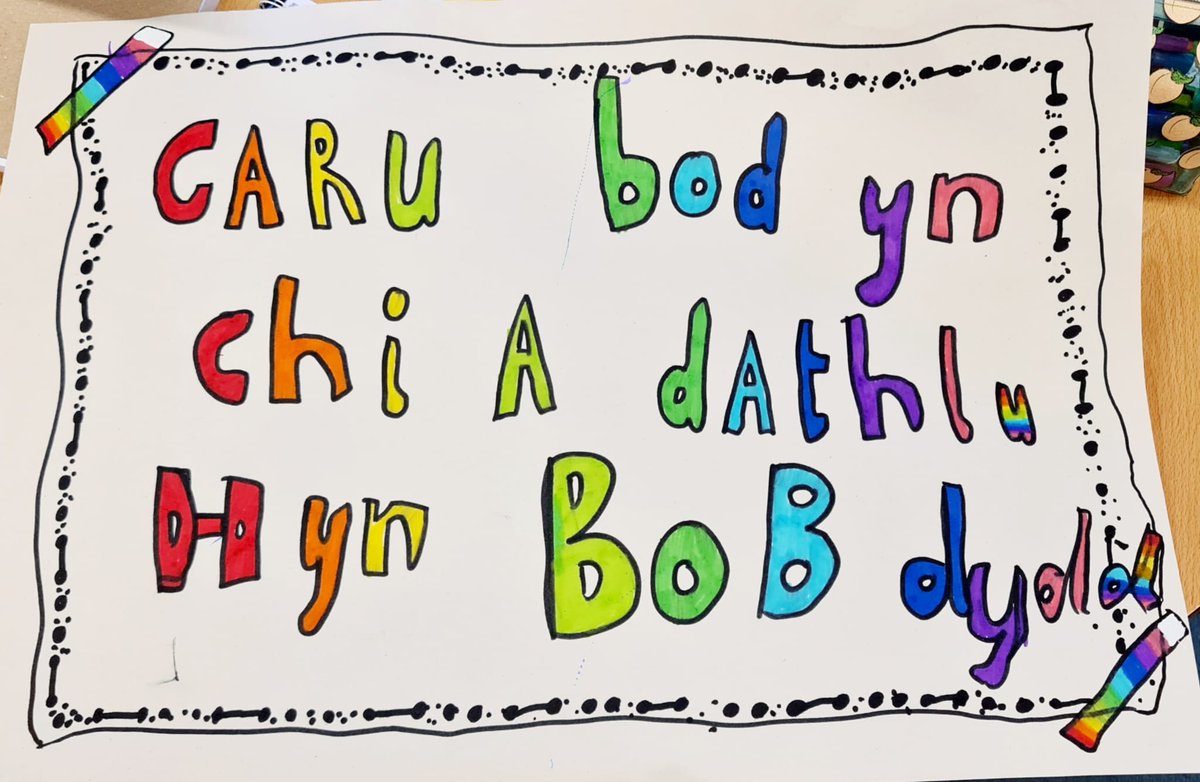 CARU bod yn
chi A dAthlu
Hyn BoB dydd